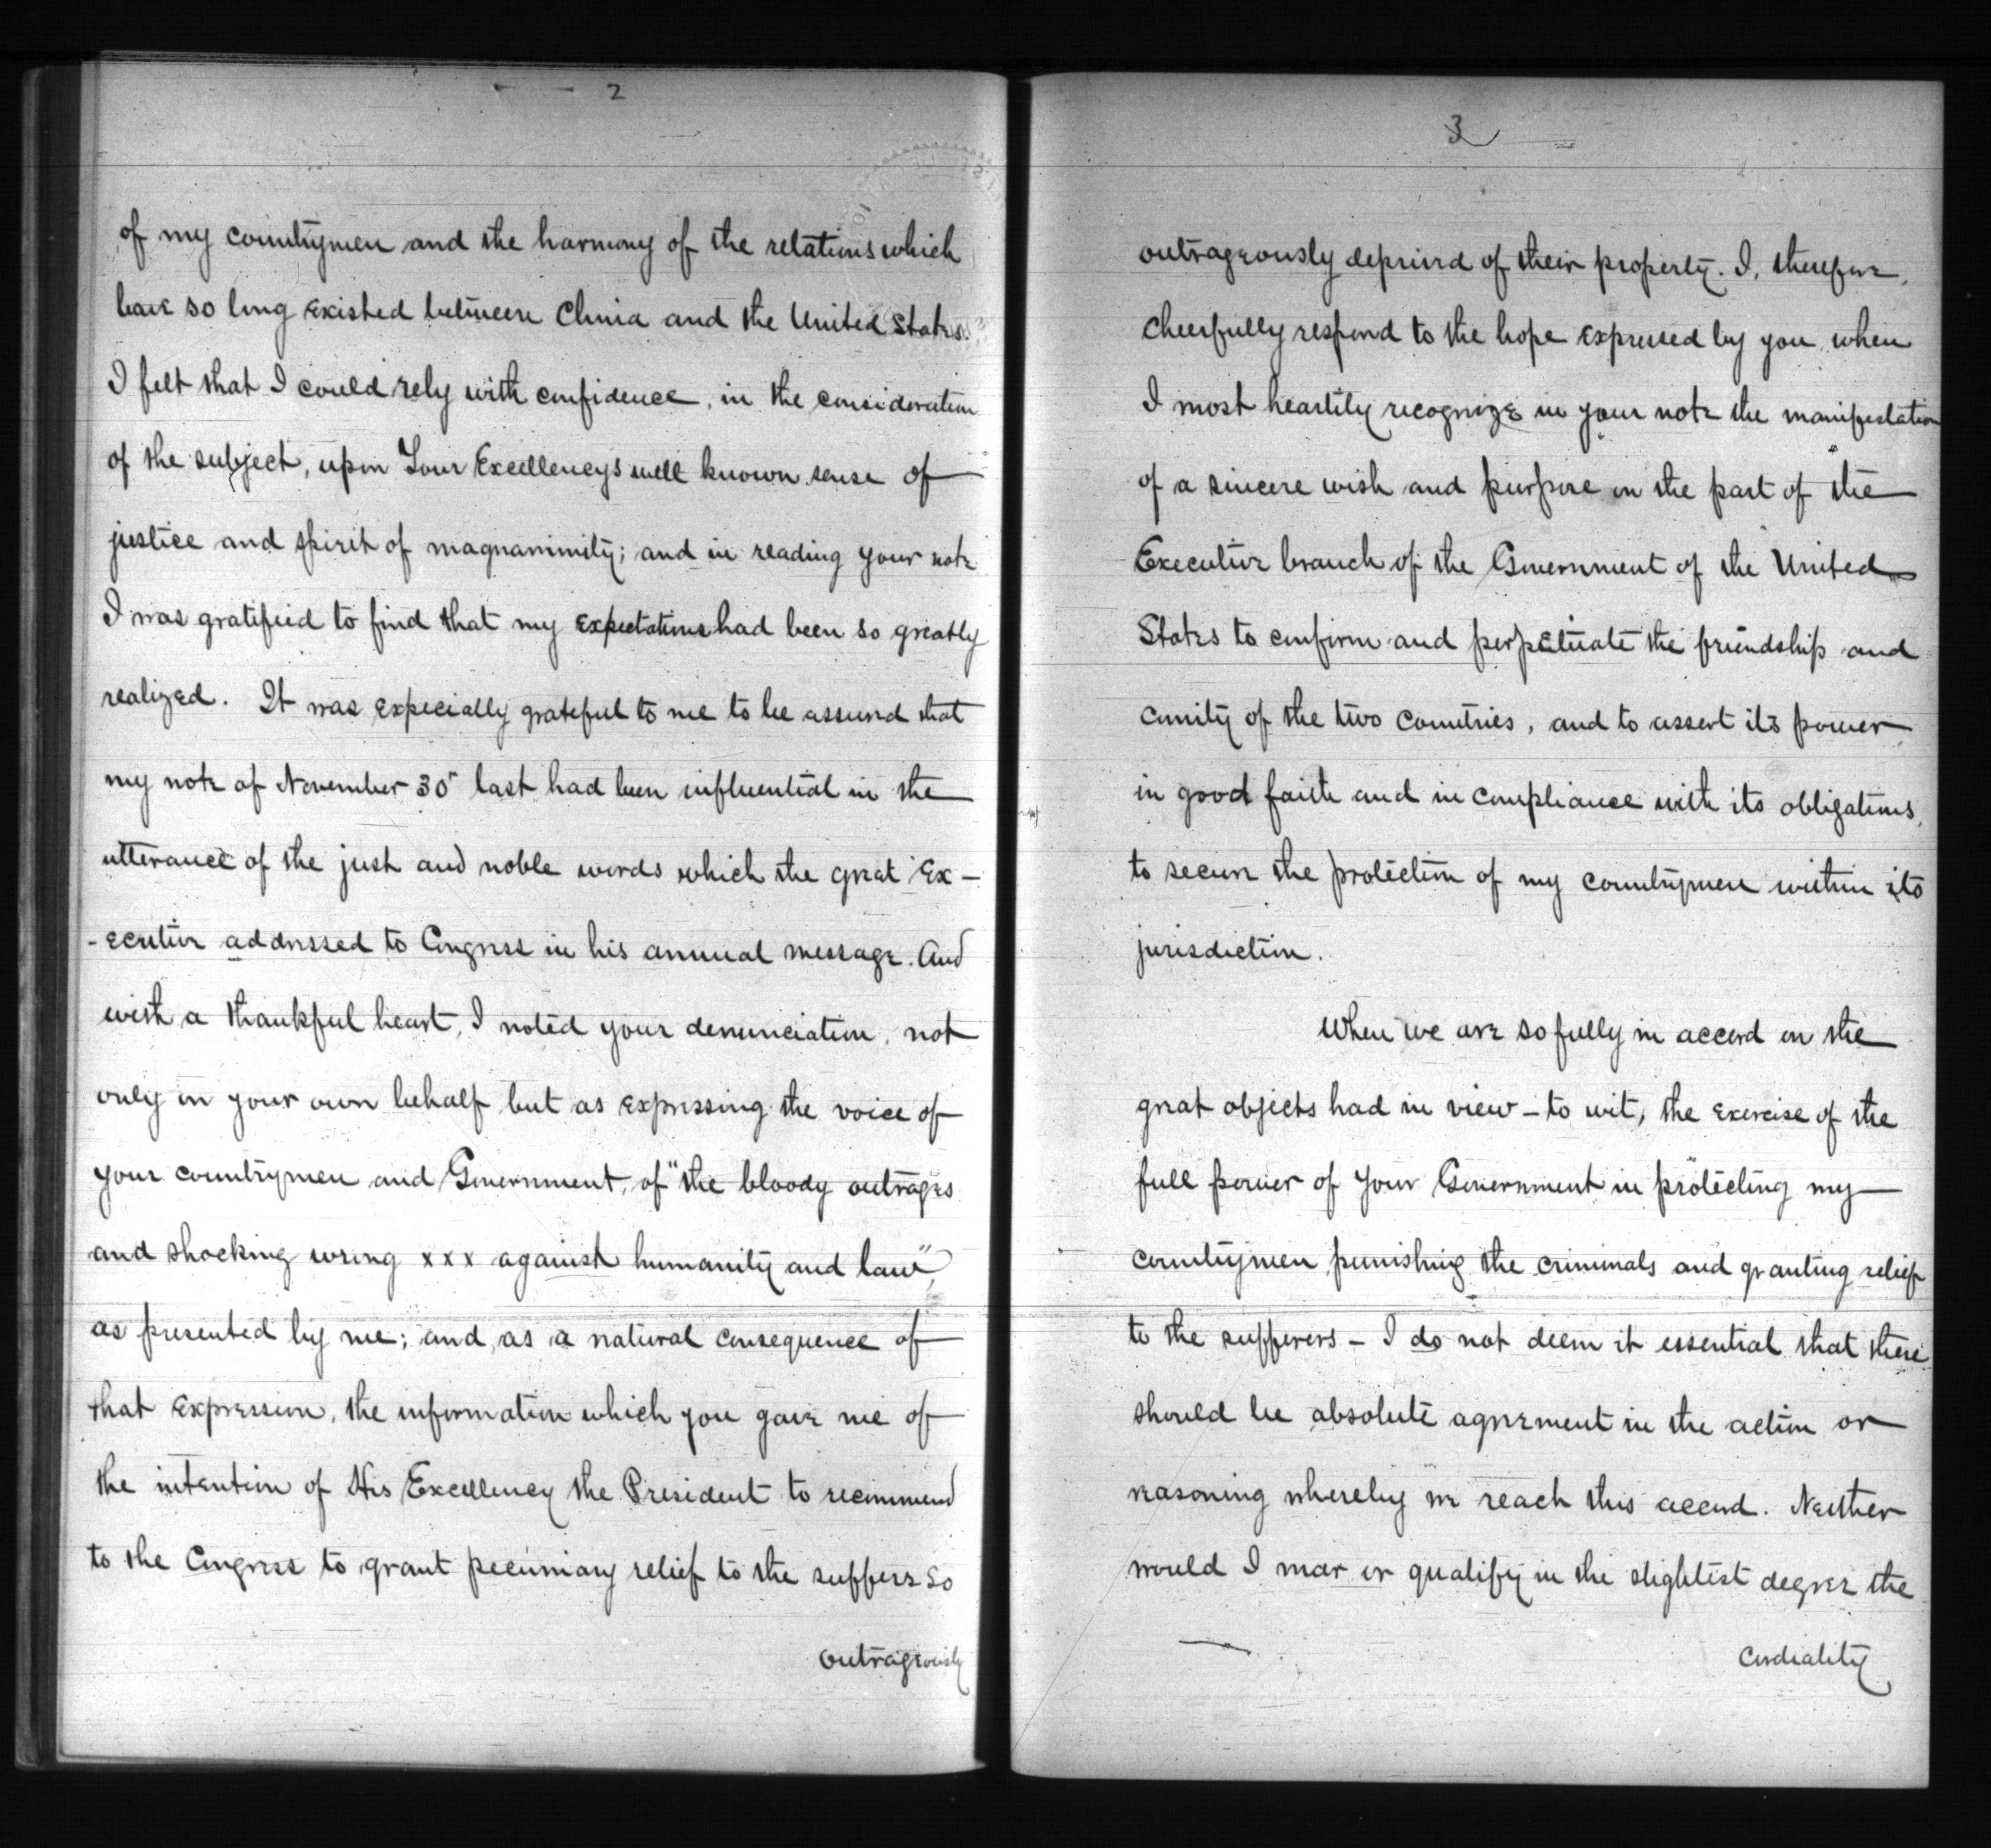 2
of my countrymen and the harmony of the relations which
have so long existed between China and the United States
I felt that I could rely with confidence, in the consideration
of the subject, upon Your Excellencys well known sense of
justice and spirit of magnanimity; and in reading your note
I was gratified to find that my expectations had been so greatly
realized. It was expecially grateful to me to be assured that
my note of November 30" last had been influential in the
utterance of the just and noble words which the great Ex-
-ecutive addressed to Congress in his annual message. And
with a thankful heart, I noted your denunciation, not
only in your own behalf but as expressing the voice of
your countrymen and Government, of "the bloody outrages
and shocking wrong x x x against humanity and law",
as presented by me; and, as a natural consequence of
that expression, the information which you gave me of
the intention of His Excellency the President to recommend
to the Congress to grant pecuniary relief to the suffers so
outrageously
3
outrageously deprived of their property. I, therefore,
cheerfully respond to the hope expressed by you, when
I most heartily recognize in your note the manifestation
of a sincere wish and purpose on the part of the
Executive branch of the Government of the United
States to confirm and perpetuate the friendship and
comity of the two countries, and to assert its power
in good faith and in compliance with its obligations,
to secure the protection of my countrymen within its
jurisdiction.
When we are so fully in accord on the
great objects had in view – to wit, the exercise of the
full power of Your Government in protecting my
countrymen, punishing the criminals and granting relief
to the sufferers – I do not deem it essential that there
should be absolute agreement in the action or
reasoning whereby we reach this accord. Neither
would I mar or qualify in the slightest degree the
cordiality